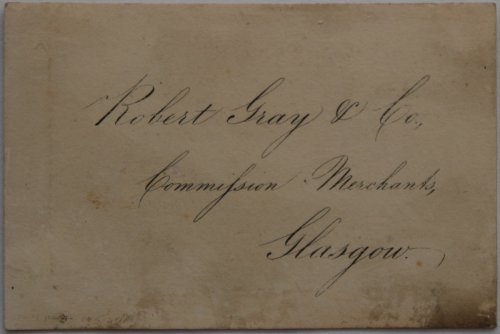 Robert Gray & Co.,
Commiſsion Merchants,
Glasgow.